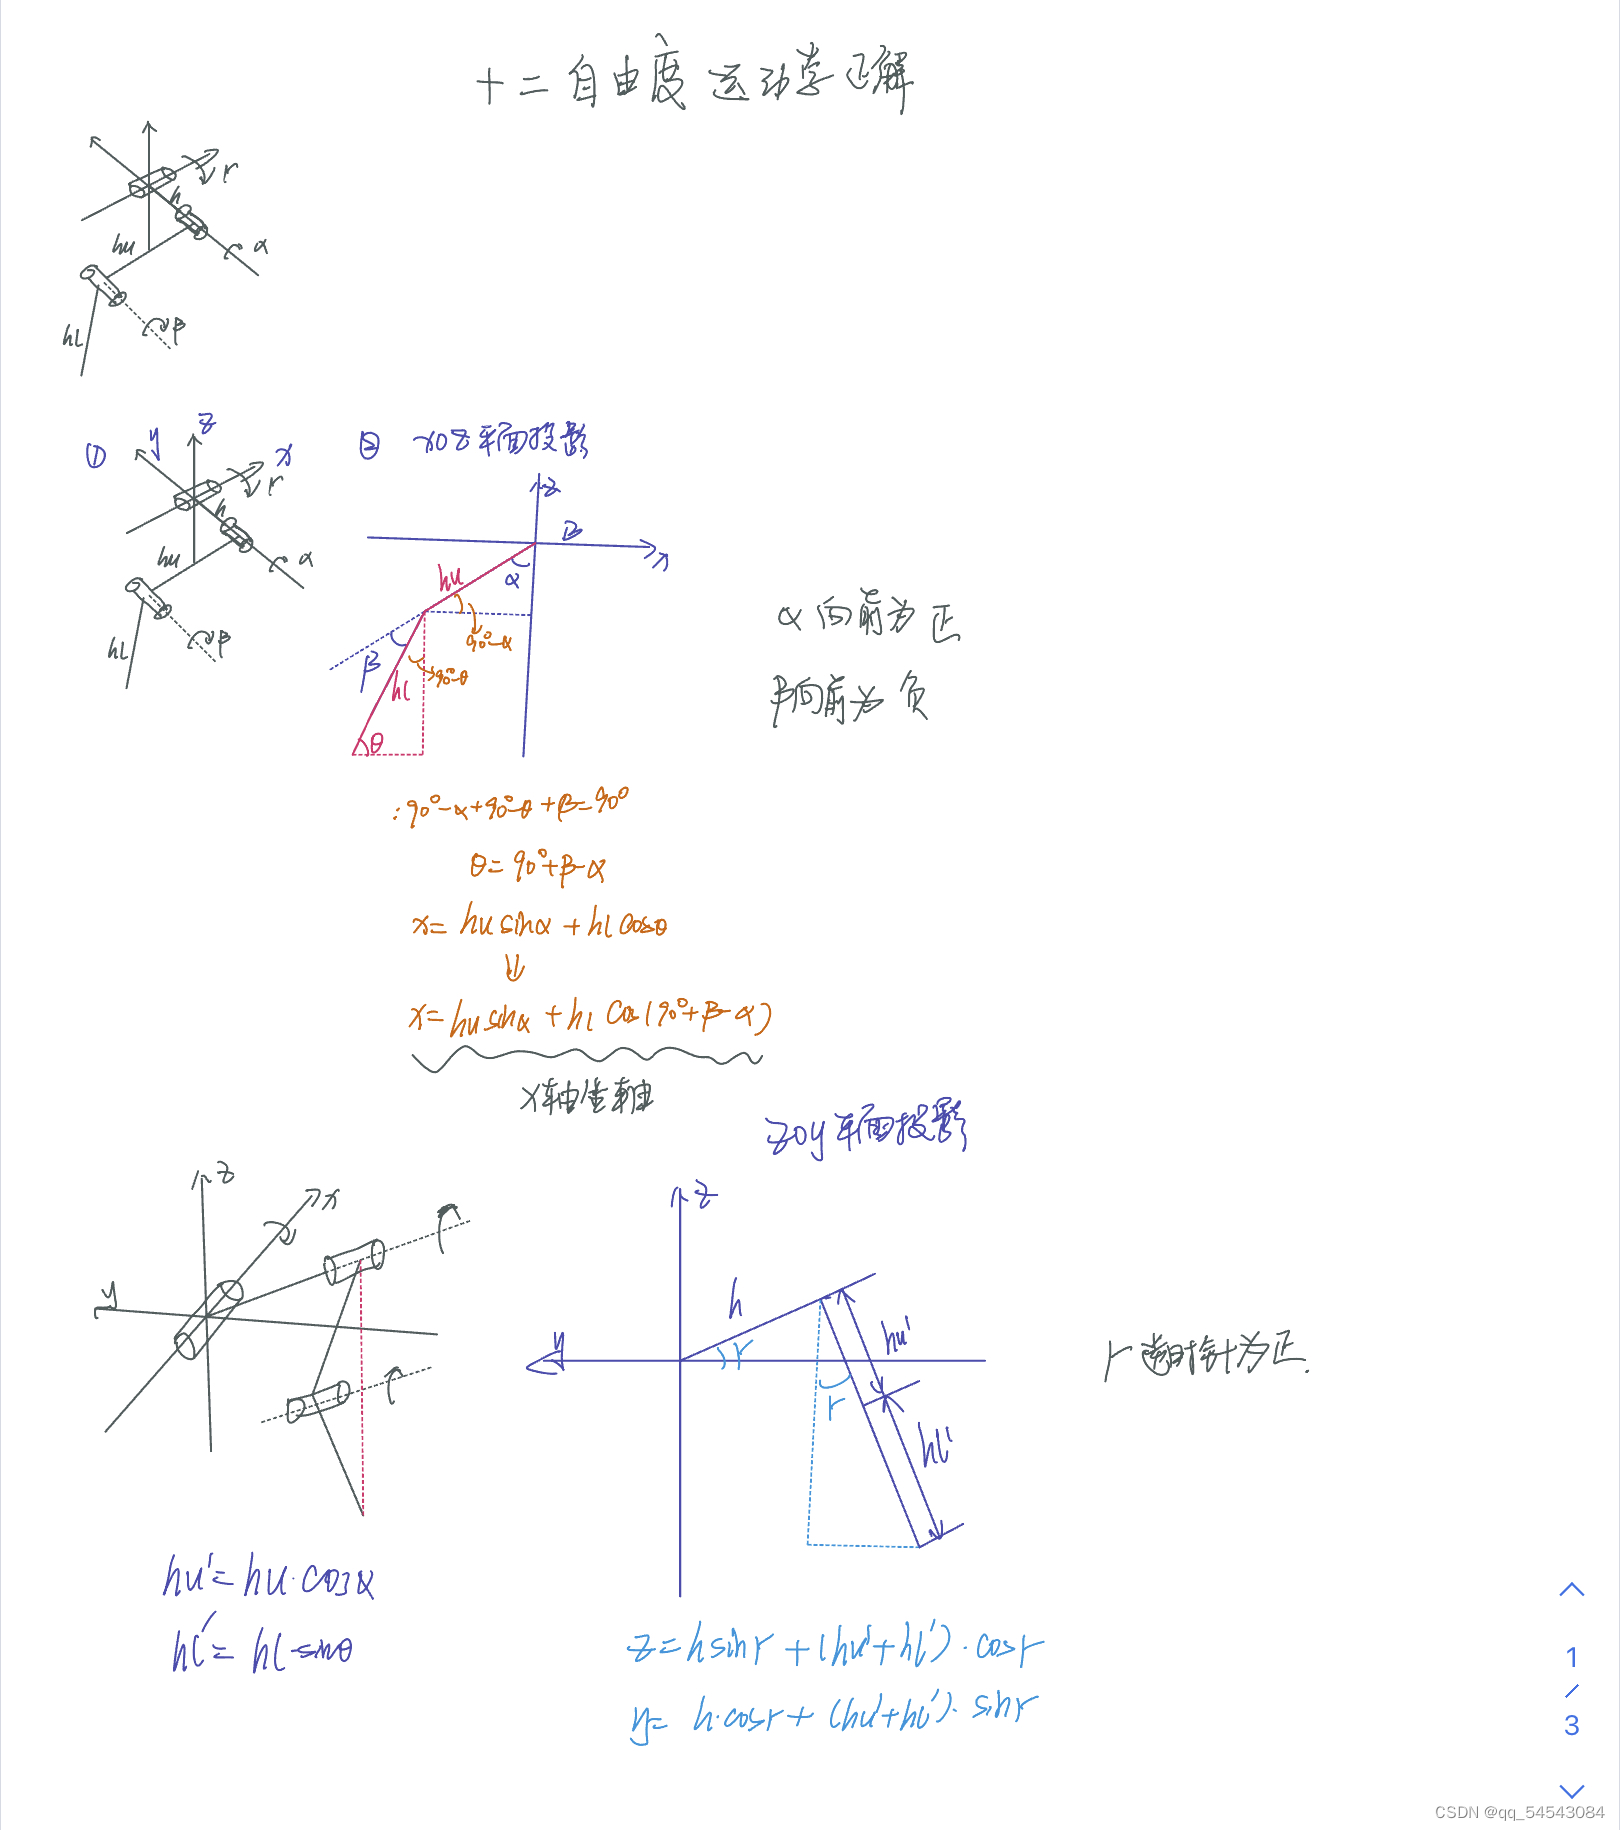 十二自由度运动学正解
r
h
hu
α
hl
β
① y z x
r
h
hu
α
hl
β
② xoz平面投影
z
β
x
hu
α
90°-α
β
hl
90°-θ
θ
α向前为正
β向前为负
:90°-α+90°-θ+β=90°
θ=90°+β-α
x=hu sinα+hl cosθ
⇓
x=hu sinα+hl cos(90°+β-α)
x轴坐轴
zoy平面投影
z
x
y
z
h
y
r
hu'
r
hl'
r 时针为正.
hu'=hu·cosα
hl'=hl·sinθ
z=h sinr+(hu'+hl')·cosr
y=h·cosr+(hu'+hl')·sinr
1
/
3
CSDN @qq_54543084